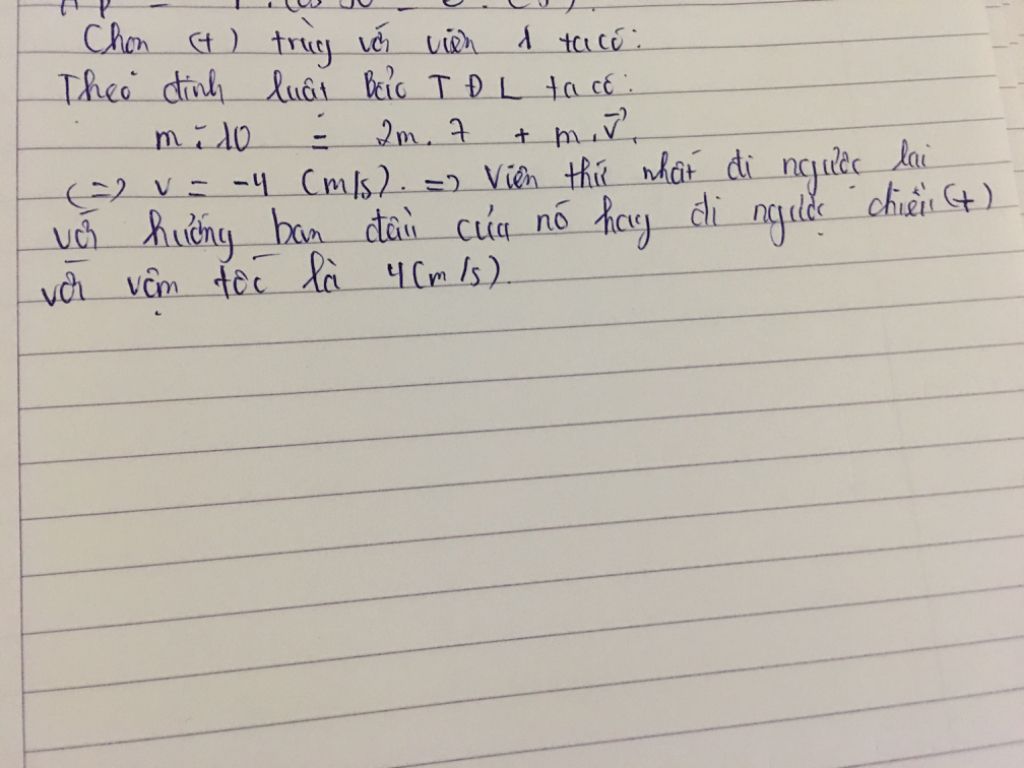 Chọn (+) trùng với viên 1 ta có:
Theo định luật Bảo T Đ L ta có:
m.10 = 2m.7 + m.v⃗.
(=> v = -4 (m/s). => Viên thứ nhất đi ngược lại
với hướng ban đầu của nó hay đi ngược chiều (+)
với vận tốc là 4(m/s).